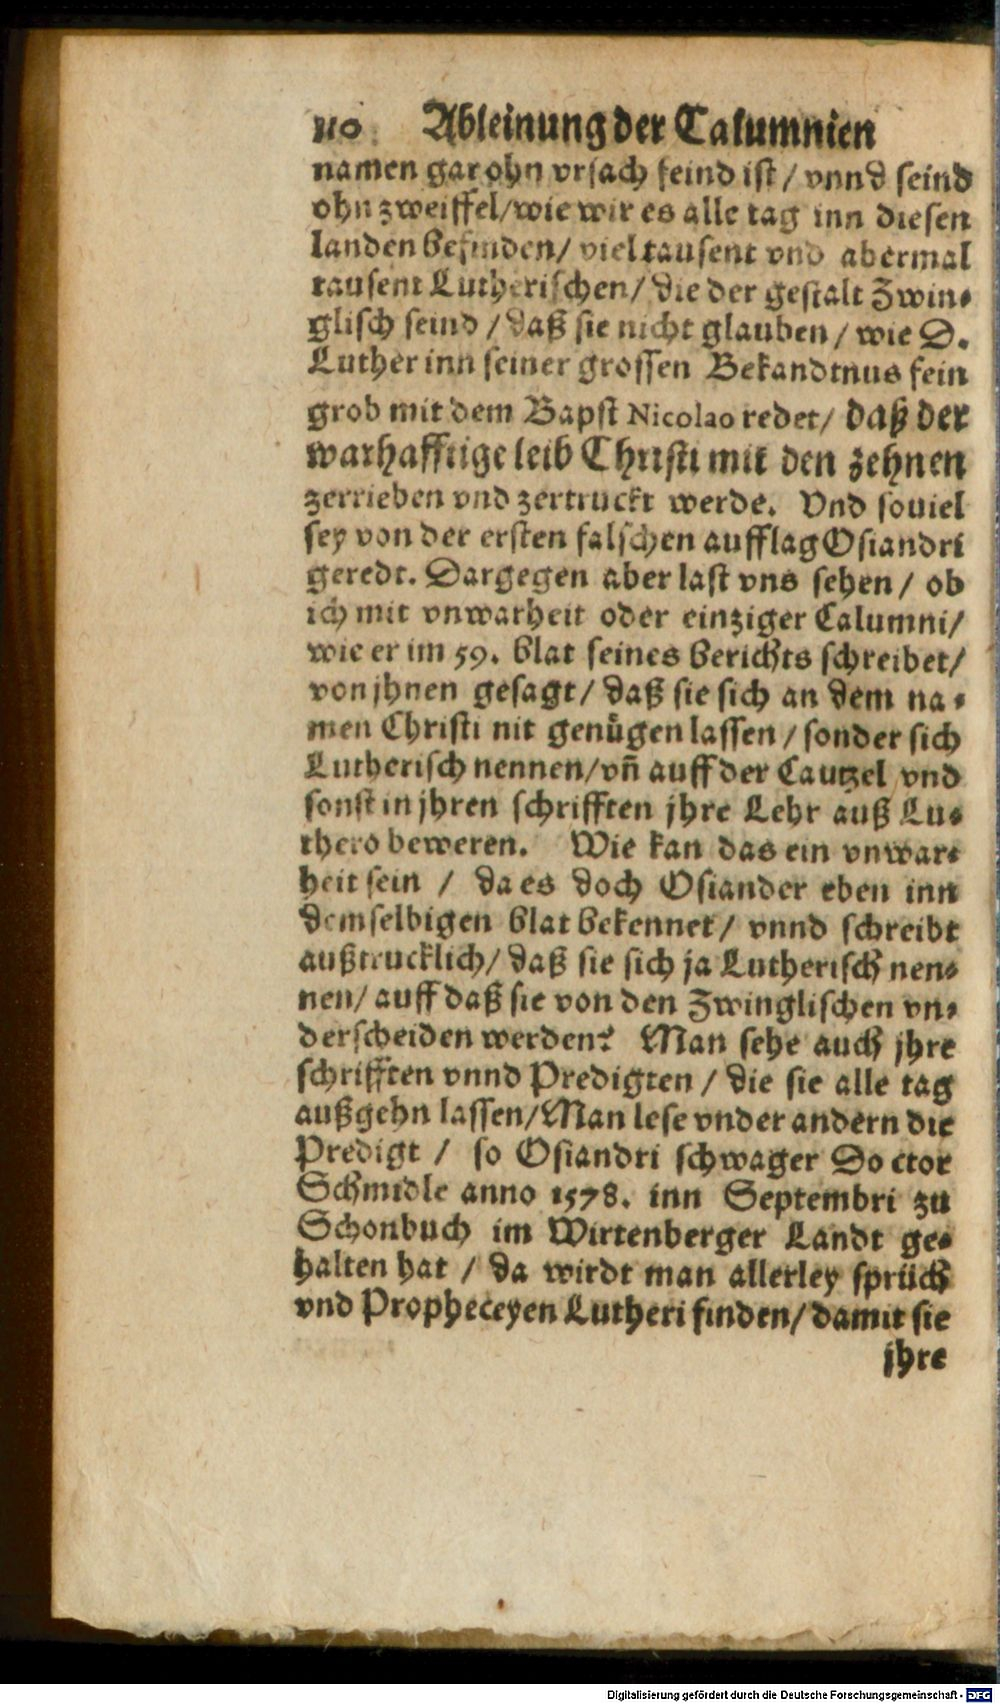 110 Ableinung der Calumnien
namen gar ohn vrsach feind ist / vnnd seind
ohn zweiffel/wie wir es alle tag inn diesen
landen befinden/ viel tausent vnd abermal
tausent Lutherischen/ die der gestalt Zwin-
glisch seind / daß sie nicht glauben / wie D.
Luther inn seiner grossen Bekandtnus fein
grob mit dem Bapst Nicolao redet/ daß der
warhafftige leib Christi mit den zehnen
zerrieben vnd zertruckt werde. Vnd souiel
sey von der ersten falschen aufflag Osiandri
geredt. Dargegen aber last vns sehen / ob
ich mit vnwarheit oder einziger Calumni/
wie er im 59. blat seines berichts schreibet/
von jhnen gesagt / daß sie sich an dem na-
men Christi nit genügen lassen / sonder sich
Lutherisch nennen/vñ auff der Cantzel vnd
sonst in jhren schrifften jhre Lehr auß Lu-
thero beweren. Wie kan das ein vnwar-
heit sein / da es doch Osiander eben inn
demselbigen blat bekennet/ vnnd schreibt
außtrucklich/ daß sie sich ja Lutherisch nen-
nen/ auff daß sie von den Zwinglischen vn-
derscheiden werden? Man sehe auch jhre
schrifften vnnd Predigten / die sie alle tag
außgehn lassen/Man lese vnder andern die
Predigt / so Osiandri schwager Doctor
Schmidle anno 1578. inn Septembri zu
Schonbuch im Wirtenberger Landt ge-
halten hat / da wirdt man allerley sprüch
vnd Propheceyen Lutheri finden/ damit sie
jhre
Digitalisierung gefördert durch die Deutsche Forschungsgemeinschaft - DFG